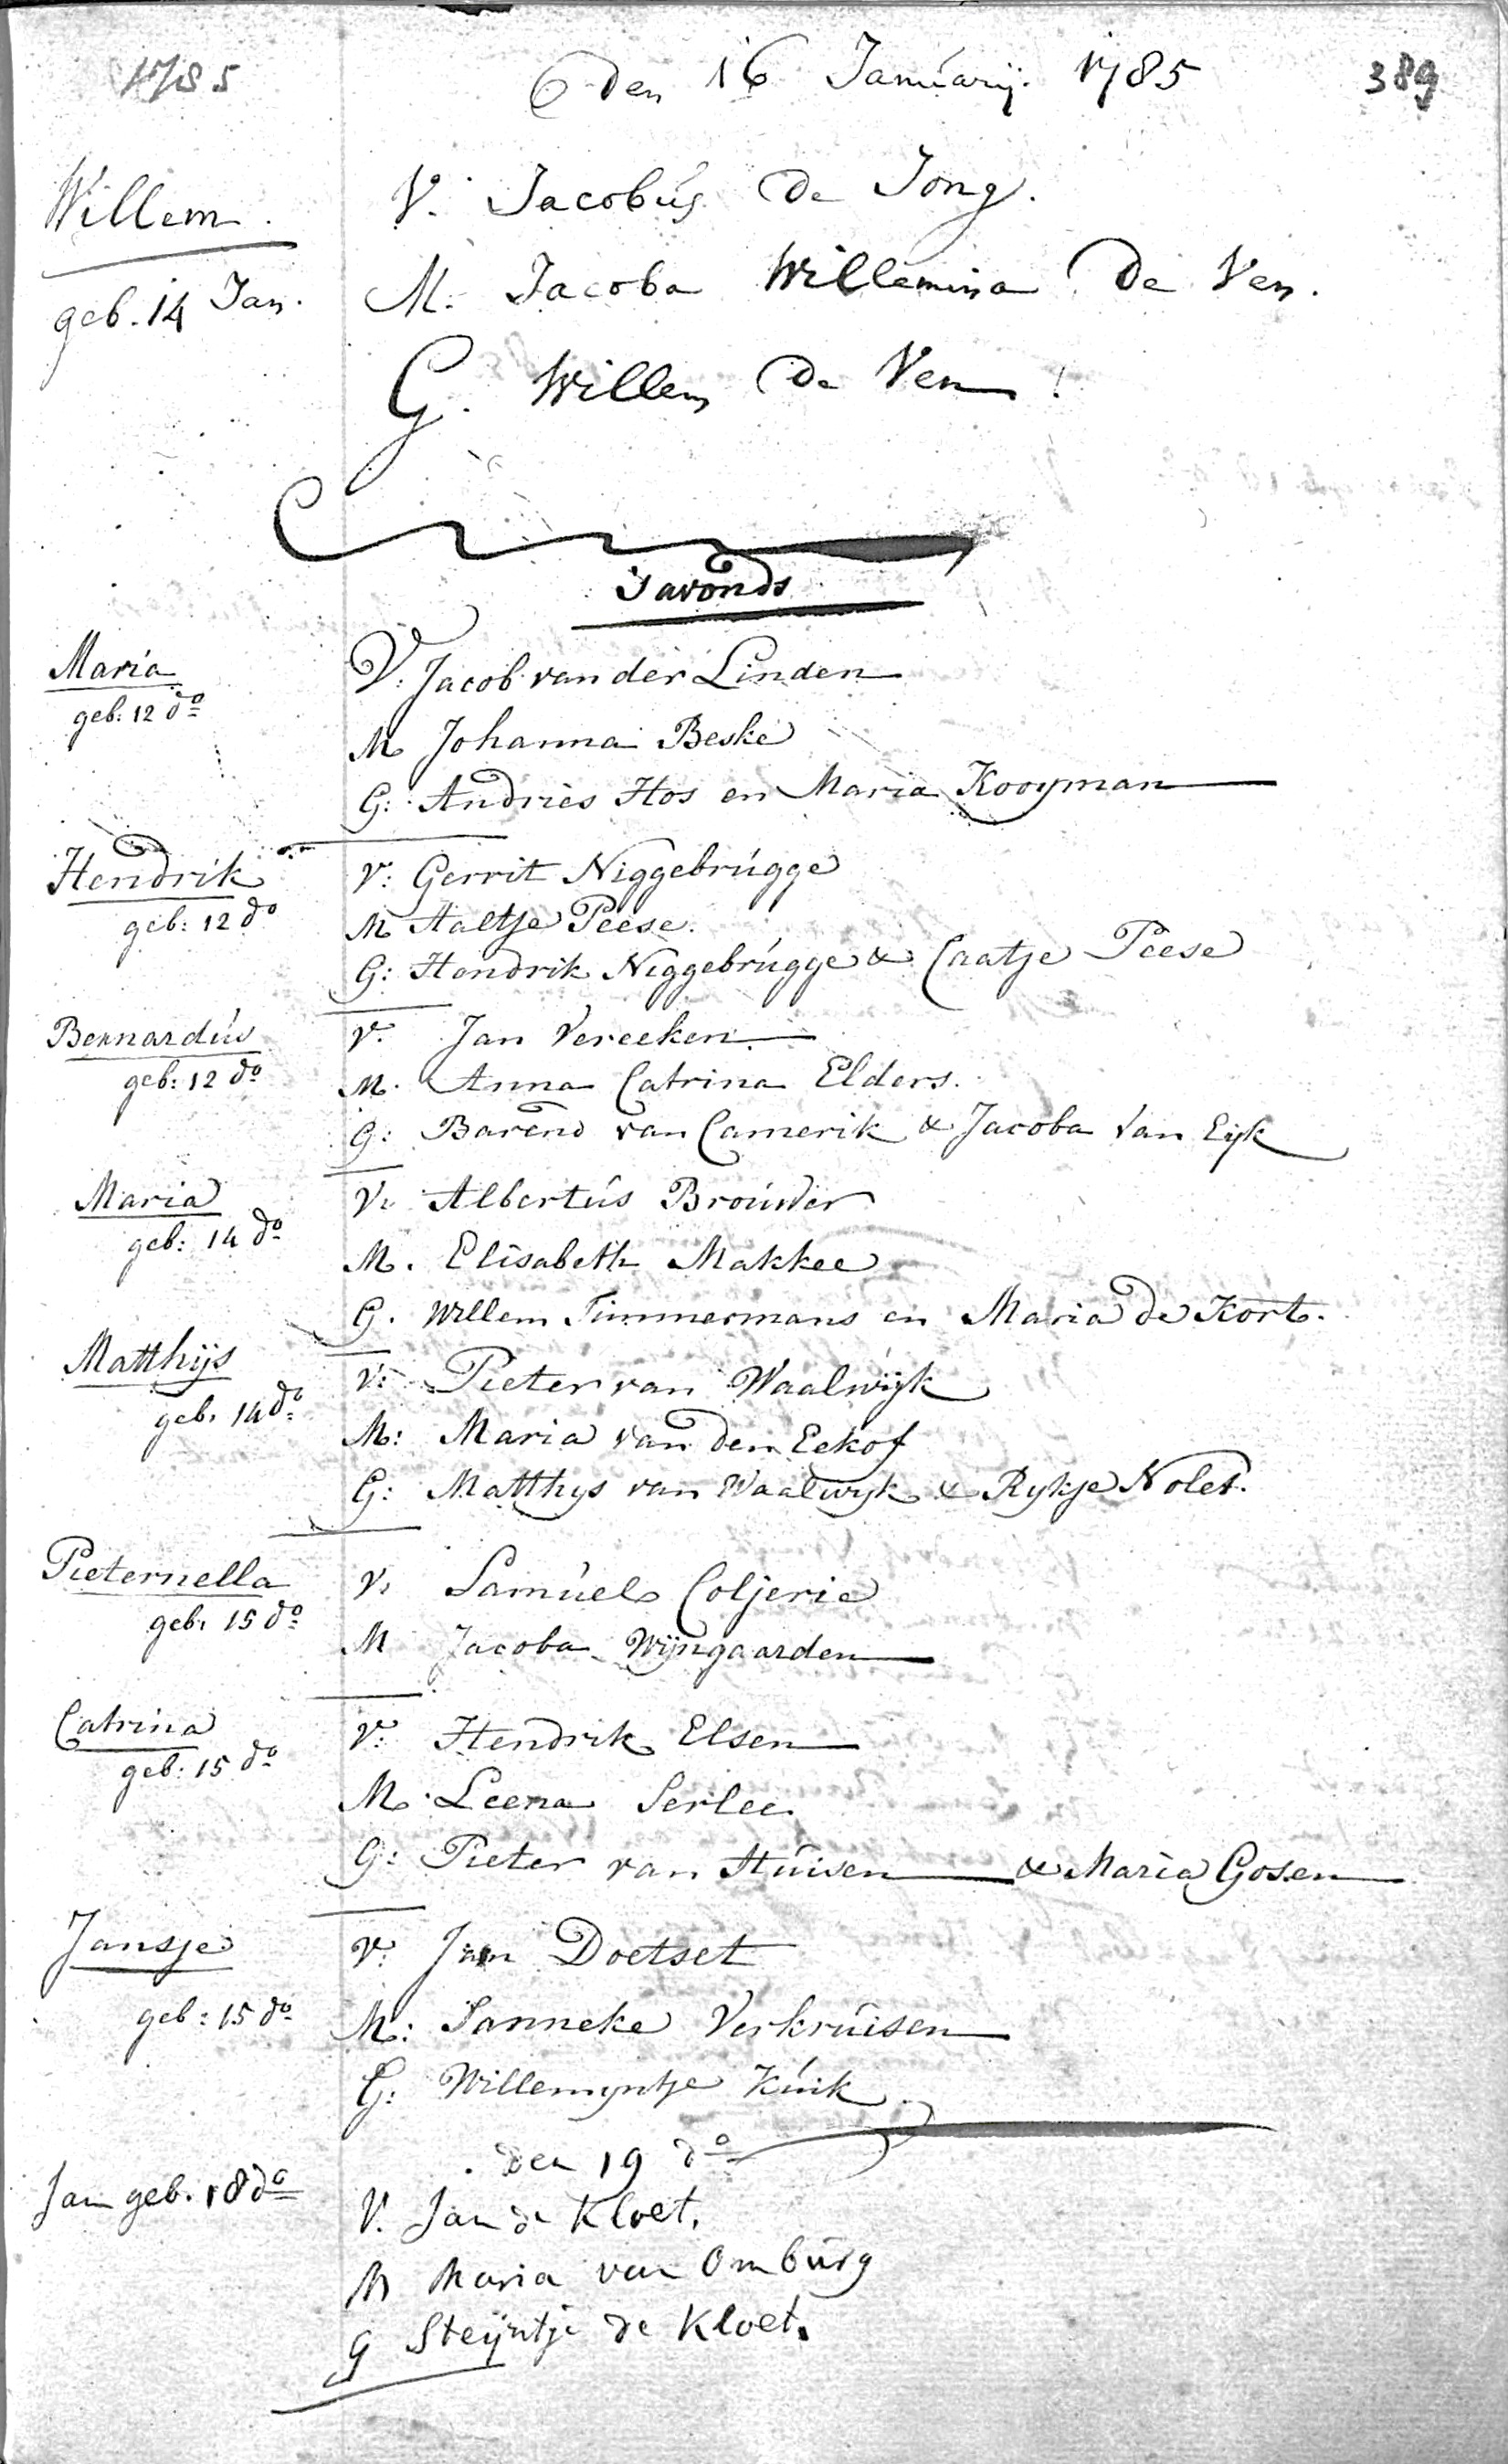 1785 den 16 Januarij. 1785 389
Willem. V. Jacobús De Jong.
geb. 14 Jan. M. Jacoba Willemina De Ven.
G. Willem De Ven
Savonds
Maria V: Jacob van der Linden
geb: 12 do
M Johanna Beske
G: Andries Hos en Maria Kooyman
Hendrik V: Gerrit Niggebrúgge
geb: 12 do M Aaltje Peese.
G: Hendrik Niggebrúgge & Caatje Peese
Bernardús V. Jan Vereeken
geb: 12 do M. Anna Catrina Elders.
G: Barend van Camerik & Jacoba van Eijk
Maria V. Albertús Broúwer
geb: 14 do M. Elisabeth Makkee
G. Willem Timmermans en Maria de Kort.
Matthijs V: Pieter van Waalwijk
geb. 14 do M: Maria van den Eekof
G: Matthys van Waalwyk & Rykje Nolet.
Pieternella V. Samúel Coljerie
geb. 15 do M Jacoba Wijngaarden
Catrina V: Hendrik Elsen
geb: 15 do M. Leena Serlee.
G: Pieter van Húisen & Maria Gosen
Jansje V. Jan Doetset
geb: 15 do M: Sanneke Verkrúisen
G: Willemyntje Kúik
den 19 do
Jan geb. 18 do V. Jan de Kloet.
M Maria van Ombúrg
G Steijntje de Kloet.